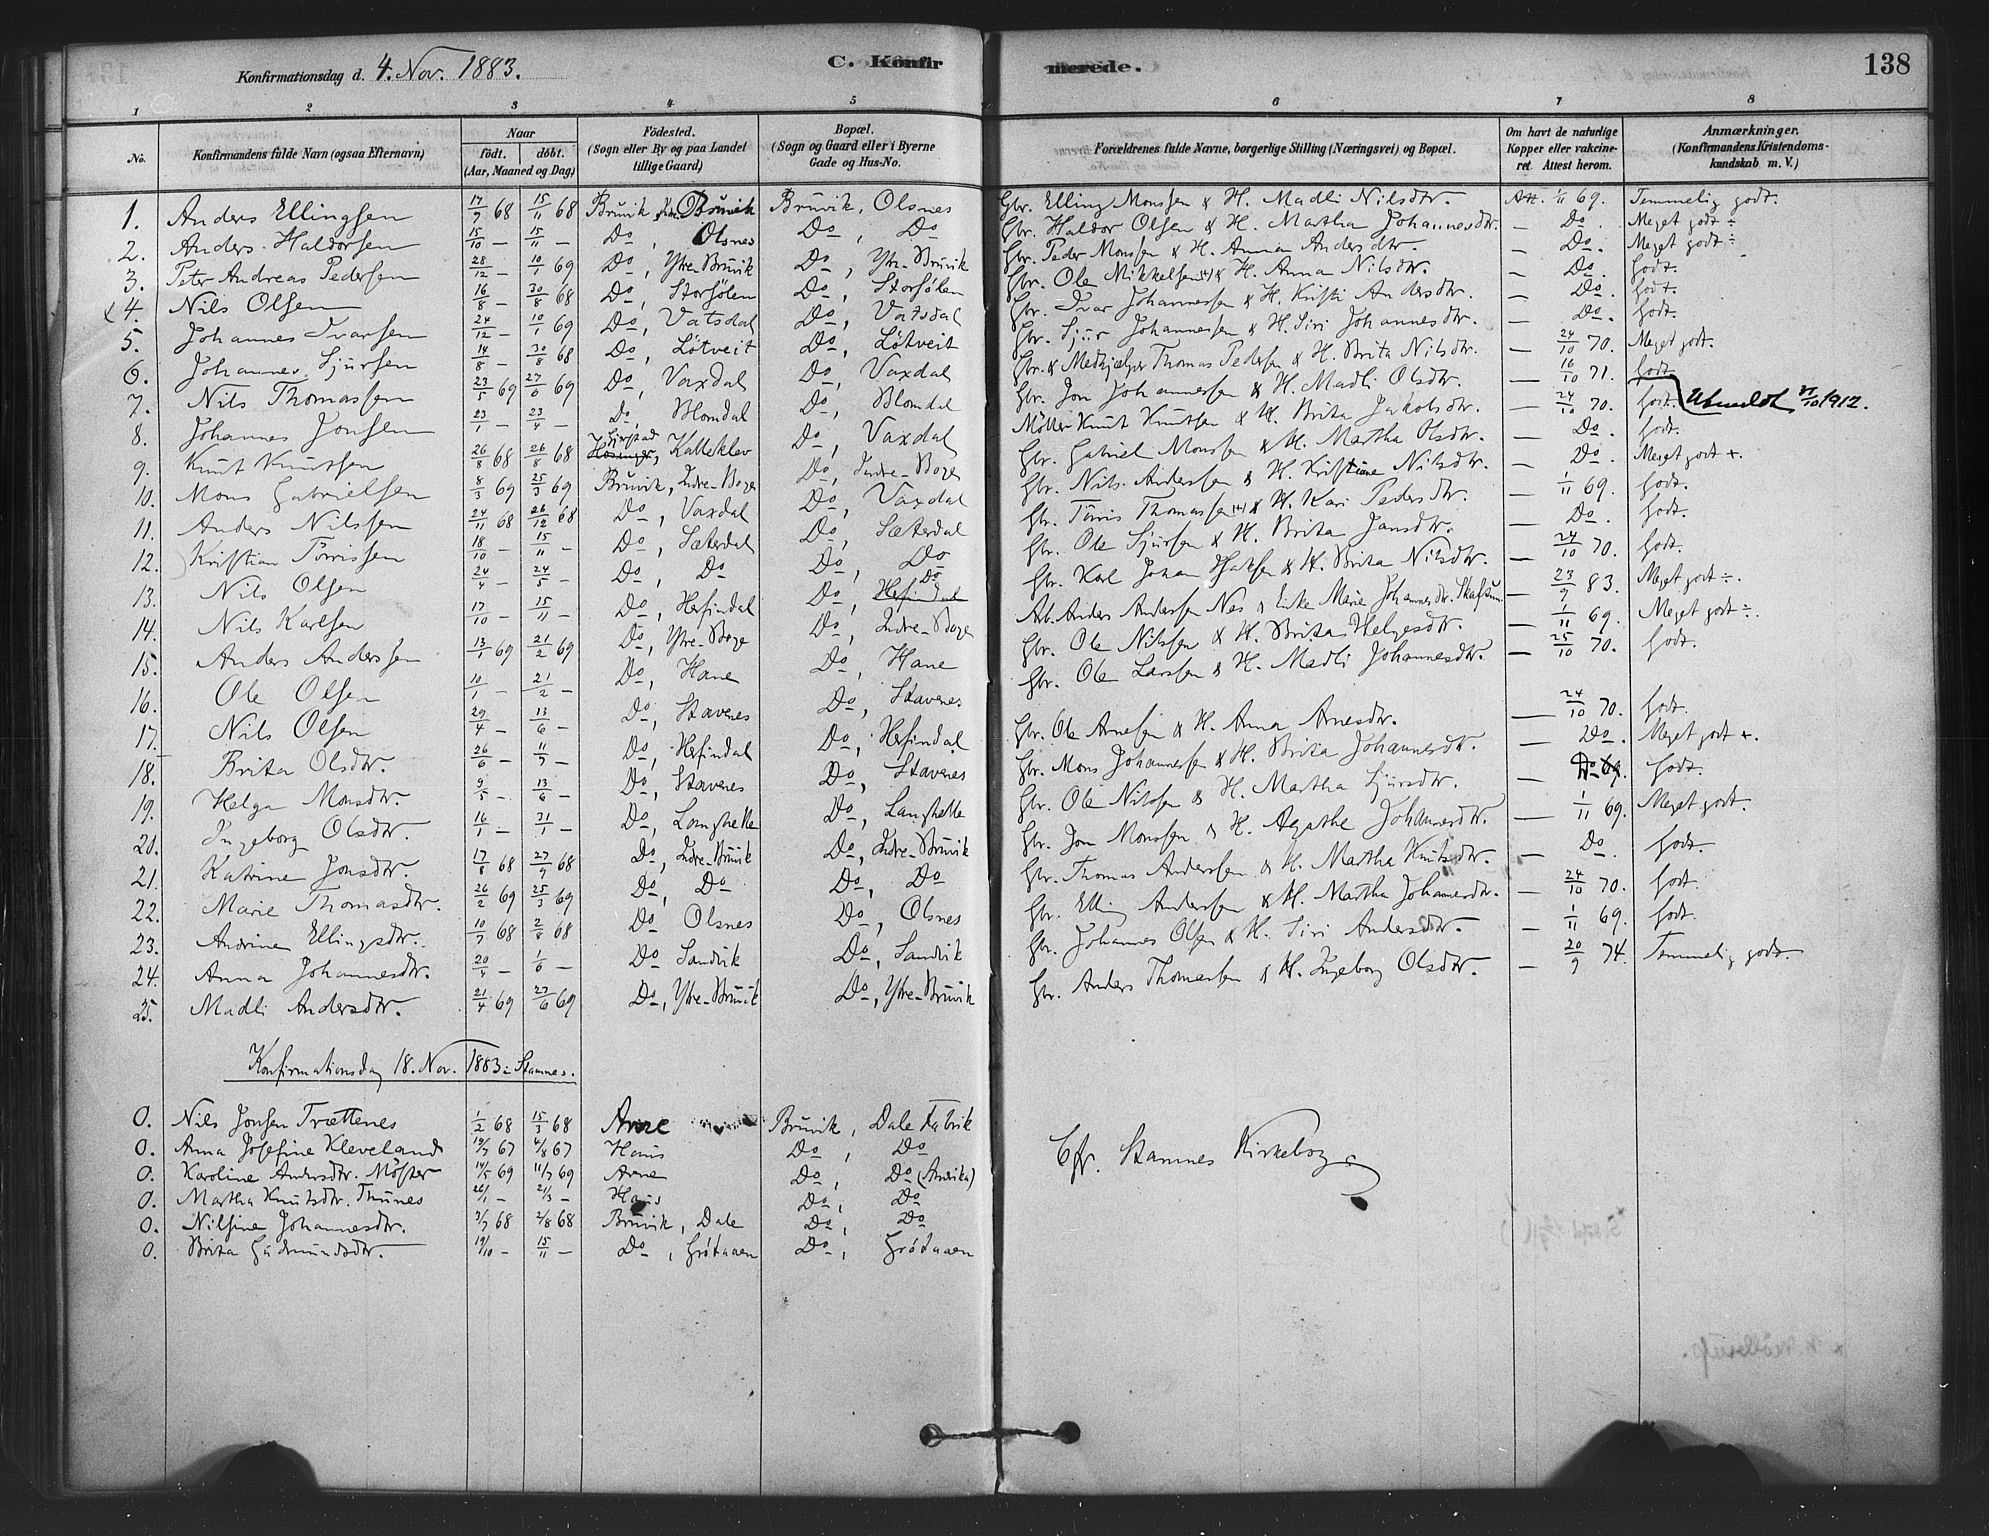 Konfirmationsdag d. 4. Nov. 1883. C. Konfirmerede. 138
1 2 3 4 5 6 7 8
No. Konfirmandens fulde Navn (ogsaa Efternavn) Naar født. døbt. (Aar, Maaned og Dag) Födested. (Sogn eller By og paa Landet tillige Gaard) Bopæl. (Sogn og Gaard eller i Byerne Gade og Hus-No. Forældrenes fulde Navne, borgerlige Stilling (Næringsvei) og Bopæl. Om havt de naturlige Kopper eller vakcineret. Attest herom. Anmærkninger. (Konfirmandens Kristendomskundskab m. V.)
1. Anders Ellingsen 17/9 68 15/11 68 Bruvik, Bruvik, Olsnes Gbr. Elling Monsen & H. Madli Nilsdtr. Att. 1/11 69. Temmelig godt.
2. Anders Haldorsen 15/10 — 15/11 — Do, Olsnes Do, Do Gbr. Haldor Olsen & H. Martha Johannesdtr. — Do. Meget godt ÷
3. Peter Andreas Pedersen 28/12 — 10/1 69 Do, Ytre-Bruvik Do, Ytre-Bruvik Gbr. Peder Monsen & H. Anna Andersdtr. — Do. Meget godt ÷
4. Nils Olsen 16/8 — 30/8 68 Do, Storsølen Do, Storsølen Gbr. Ole Mikkelsen (+) & H. Anna Nilsdtr. — Do. Godt.
5. Johannes Ivarsen 24/12 — 10/1 69 Do, Vatsdal Do, Vatsdal Gbr. Ivar Johannessen & H. Kristi Andersdtr. — Do. Godt.
6. Johannes Sjursen 14/8 — 30/8 68 Do, Løtveit Do, Løtveit Gbr. Sjur Johannessen & H. Siri Johannesdtr. — Do. Godt.
7. Nils Thomassen 23/5 69 27/6 69 Do, Vaxdal Do, Vaxdal Gbr. & Medhjælper Thomas Pedersen & H. Brita Nilsdtr. — 24/10 70. Meget godt.
8. Johannes Jonsen 23/1 — 23/4 — Do, Blomdal Do, Blomdal Gbr. Jon Johannessen & H. Madli Olsdtr. — 16/10 71. Godt.
9. Knut Knutsen 26/8 68 26/8 68 Kalleklev Do, Vaxdal Møller Knut Knutsen & H. Brita Jakobsdtr. — 24/10 70. Godt. Udmeldt 1912.
10. Mons Gabrielsen 8/3 69 25/3 69 Bruvik, Indre-Boge Do, Indre-Boge Gbr. Gabriel Monsen & H. Martha Olsdtr. — Do. Godt.
11. Anders Nilssen 24/11 68 26/12 68 Do, Vaxdal Do, Vaxdal Gbr. Nils Anderssen & H. Kristiane Nilsdtr. — Do. Meget godt +.
12. Kristian Tørrissen 18/10 — 15/11 — Do, Sæterdal Do, Sæterdal Gbr. Tørris Thomassen (+) & H. Kari Pedersdtr. — 1/11 69. Godt.
13. Nils Olsen 24/4 — 24/5 — Do, Do Do, Do Gbr. Ole Sjursen & H. Brita Jansdtr. — Do. Godt.
14. Nils Karlsen 17/10 — 15/11 — Do, Herfindal Do, Herfindal Do Gbr. Karl Johan & H. Brita Nilsdtr. — 24/10 70. Godt.
15. Anders Anderssen 13/1 69 21/2 69 Do, Ytre-Boge Do, Indre-Boge Arb. Anders Anderssen Nes & Enke Marie Johannesdtr. — 23/9 83. Meget godt ÷.
16. Ole Olsen 10/1 — 21/2 — Do, Hane Do, Hane Gbr. Ole Nilssen & H. Brita Helgesdtr. — 1/11 69. Meget godt ÷.
17. Nils Olsen 29/4 — 13/6 — Do, Stavenes Do, Stavenes Gbr. Ole Larssen & H. Madli Johannesdtr. — 25/10 70. Godt.
18. Brita Olsdtr. 26/6 — 11/7 — Do, Herfindal Do, Herfindal Gbr. Ole Arnesen & H. Anna Arnesdtr. — 24/10 70. Godt.
19. Helga Monsdtr. 9/5 — 13/6 — Do, Stavenes Do, Stavenes Gbr. Mons Johannessen & H. Brita Johannesdtr. — Do. Meget godt +.
20. Ingeborg Olsdtr. 16/1 — 31/1 — Do, Langhelle Do, Langhelle Gbr. Ole Nilssen & H. Martha Sjursdtr. — Do. Godt.
21. Katrine Jonsdtr. 17/8 68 27/9 68 Do, Indre-Bruvik Do, Indre-Bruvik Gbr. Jon Monssen & H. Agathe Johannesdtr. — 1/11 69. Meget godt.
22. Marie Thomasdtr. 26/2 69 25/3 69 Do, Do Do, Do Gbr. Thomas Anderssen & H. Martha Knutsdtr. — Do. Godt.
23. Andrine Ellingsdtr. 10/7 68 2/8 68 Do Olsnes Do, Olsnes Gbr. Elling Anderssen & H. Martha Johannesdtr. — 24/10 70. Godt.
24. Anna Johannesdtr. 20/4 — 1/6 — Do Sandvik Do, Sandvik Gbr. Johannes Olsen & H. Siri Andersdtr. — 1/11 69. Godt.
25. Madli Andersdtr. 21/4 69 27/6 69 Do, Ytre-Bruvik Do, Ytre-Bruvik Gbr. Anders Thomassen & H. Ingeborg Olsdtr. — 20/9 74. Temmelig godt.
Konfirmationsdag 18. Nov. 1883 i Stamnes.
0. Nils Jonsen Trættenes 1/2 68 15/3 68 Arne Bruvik, Dale Fabrik
0. Anna Josefine Kleveland 19/7 67 4/8 67 Haus Do, Do
0. Karoline Andersdtr. Møster 14/5 69 11/7 69 Arne Do, Do (Amerika)
0. Martha Knutsdtr. Thunes 26/1 — 21/3 — Haus Do, Do
0. Nilsine Johannesdtr. 3/7 68 2/8 68 Bruvik, Dale Do, Do
0. Brita Gudmundsdtr. 19/10 — 15/11 — Do, Grøtaaen Do, Grøtaaen
Cfr. Stamnes Kirkebog